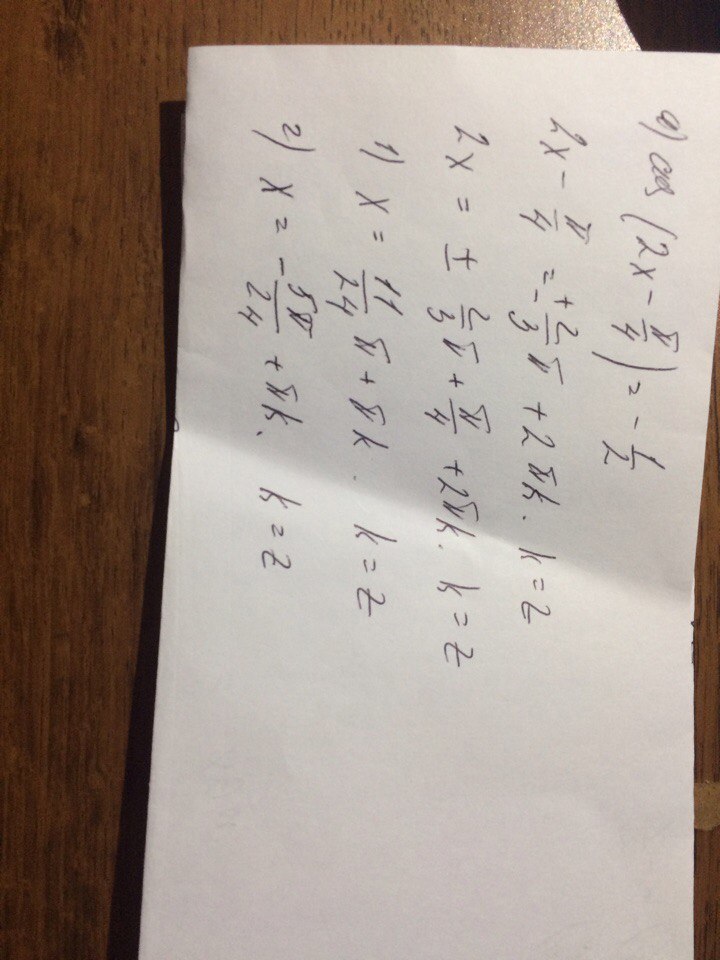 a) cos (2x - π/4) = - 1/2
2x - π/4 = ± 2/3 π + 2πk. k = z
2x = ± 2/3 π + π/4 + 2πk. k = z
1) x = 11/24 π + πk. k = z
2) x = - 5π/24 + πk. k = z